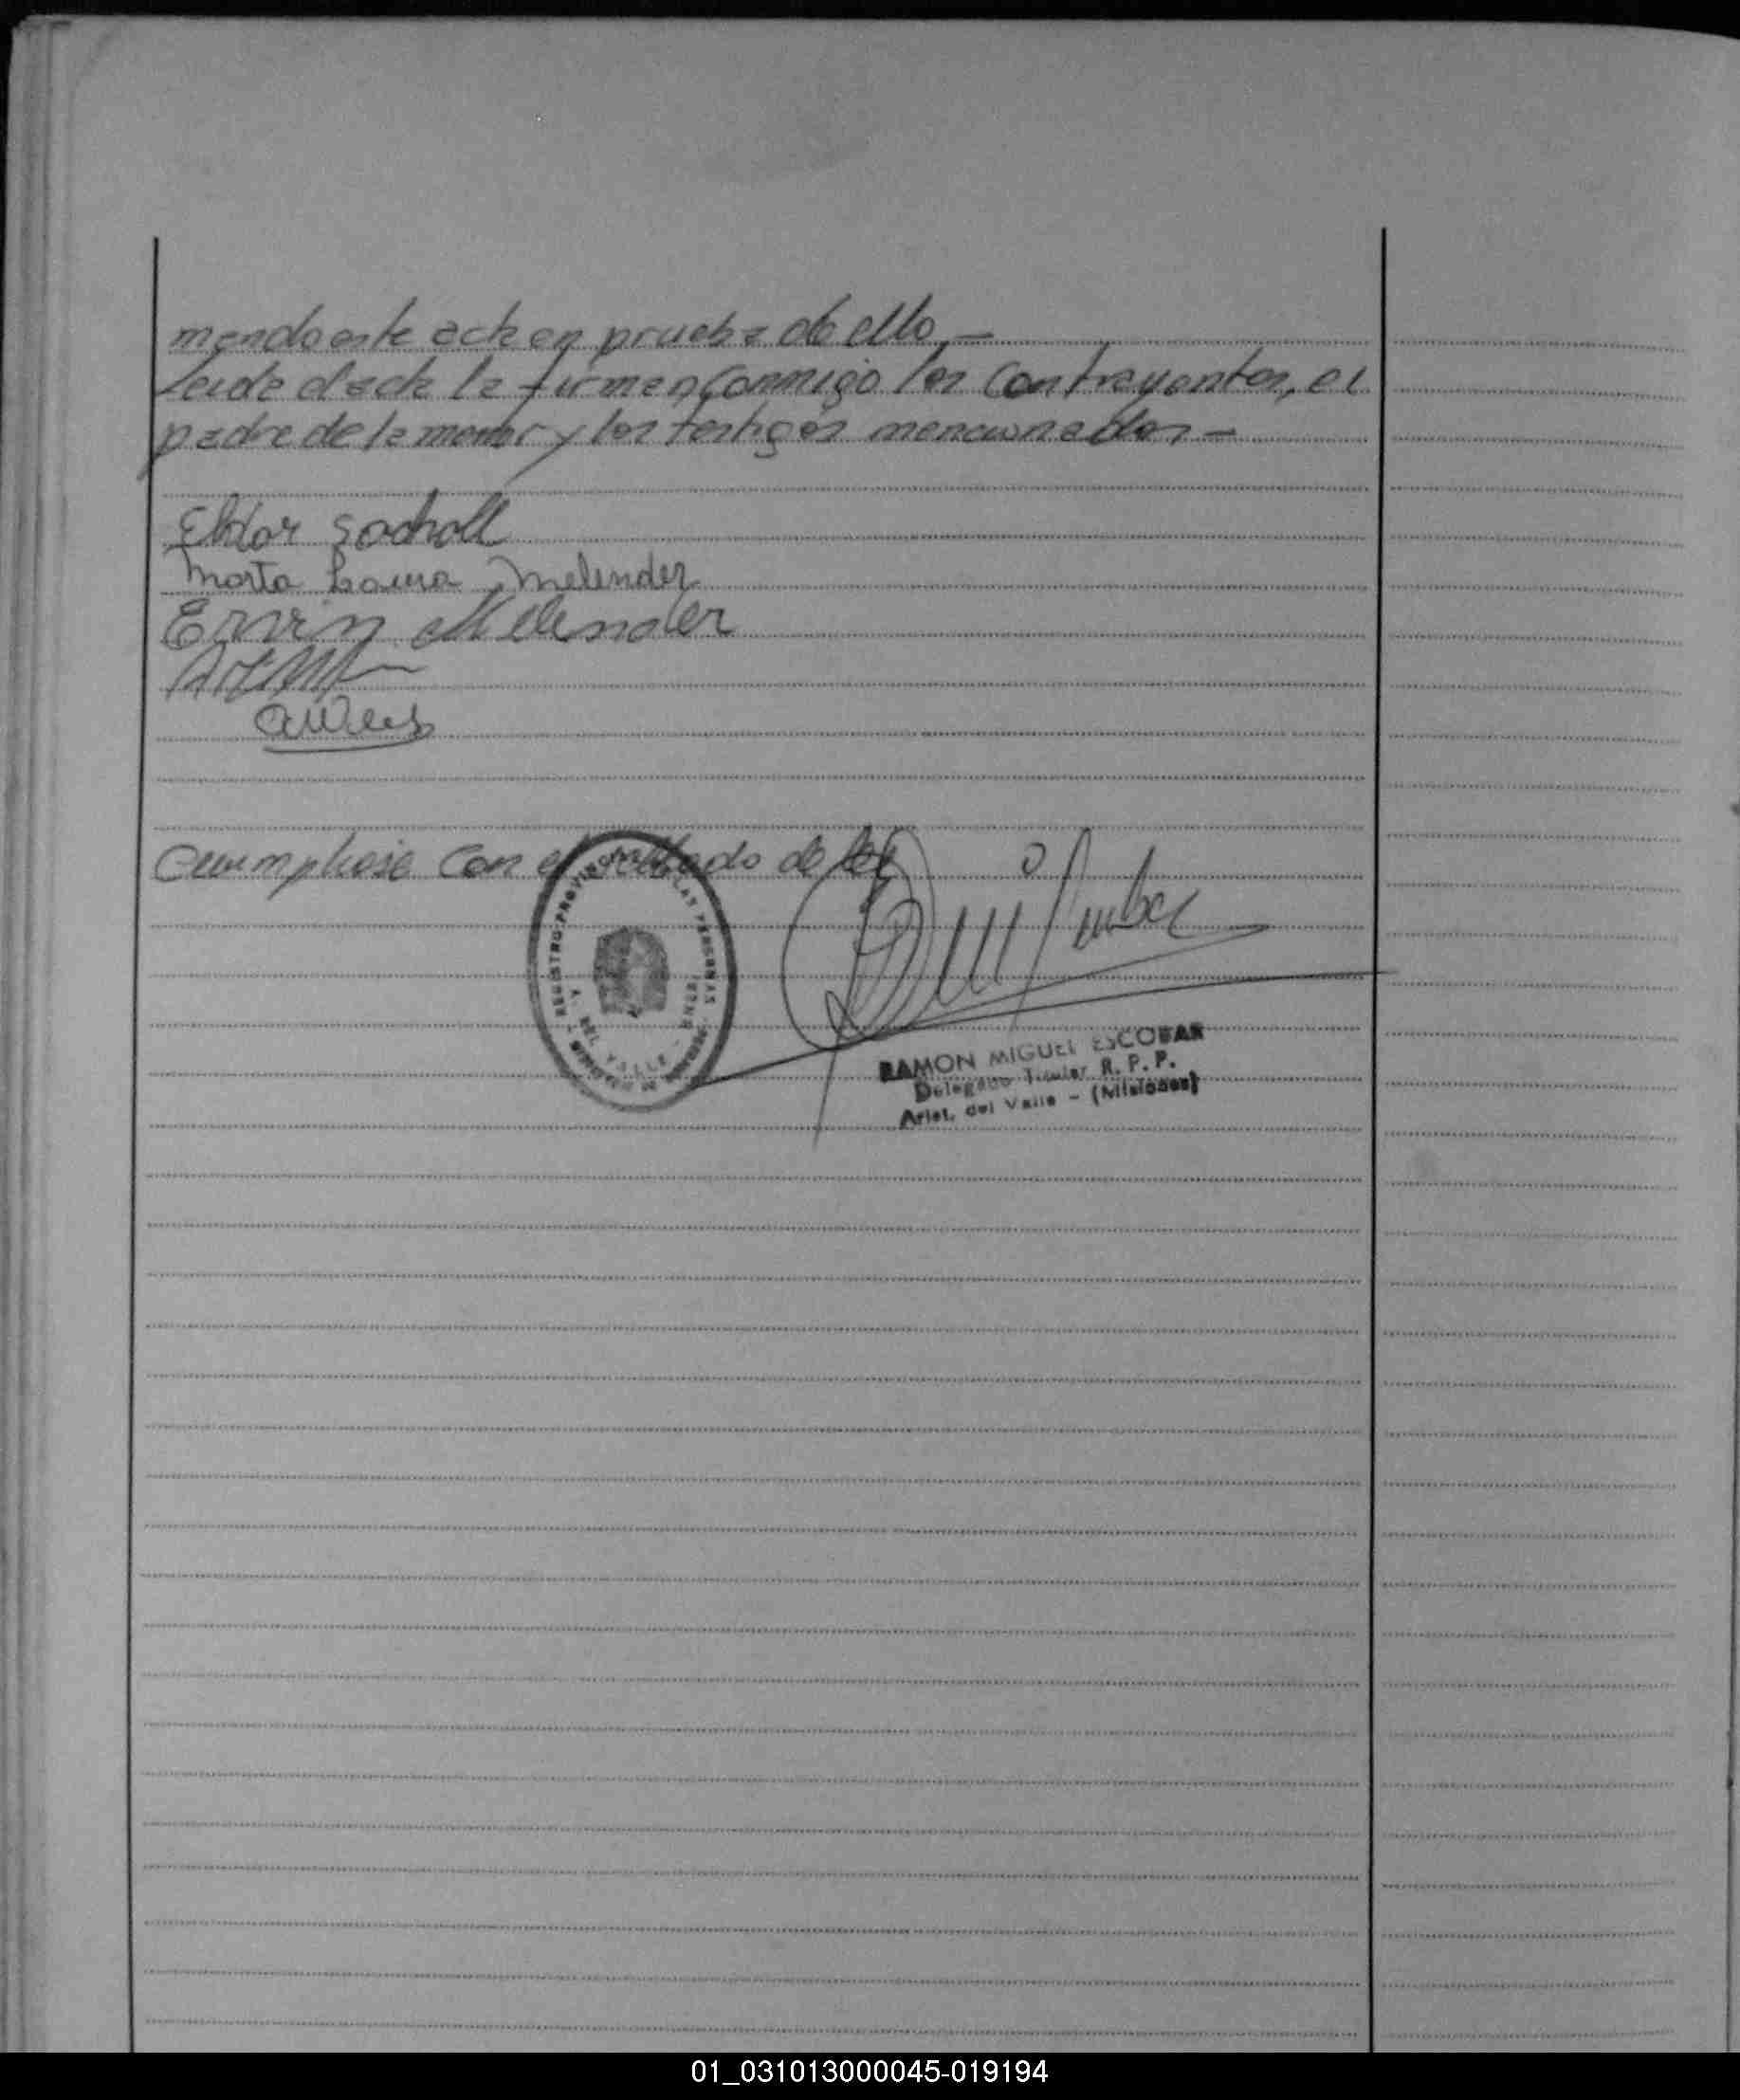 mando este acta en prueba de ello.—
Leida el acta la firman conmigo los Contrayentes, el
padre de la menor y los testigos mencionados—
Eldor
Marta Laura Melender
Ervin Melender
Cumpliose con el sellado de ley
REGISTRO PROVINCIAL DE LAS PERSONAS
RAMON MIGUEL ESCOBAR
Delegado Titular R. P. P.
Arist. del Valle - (Misiones)
01_031013000045-019194